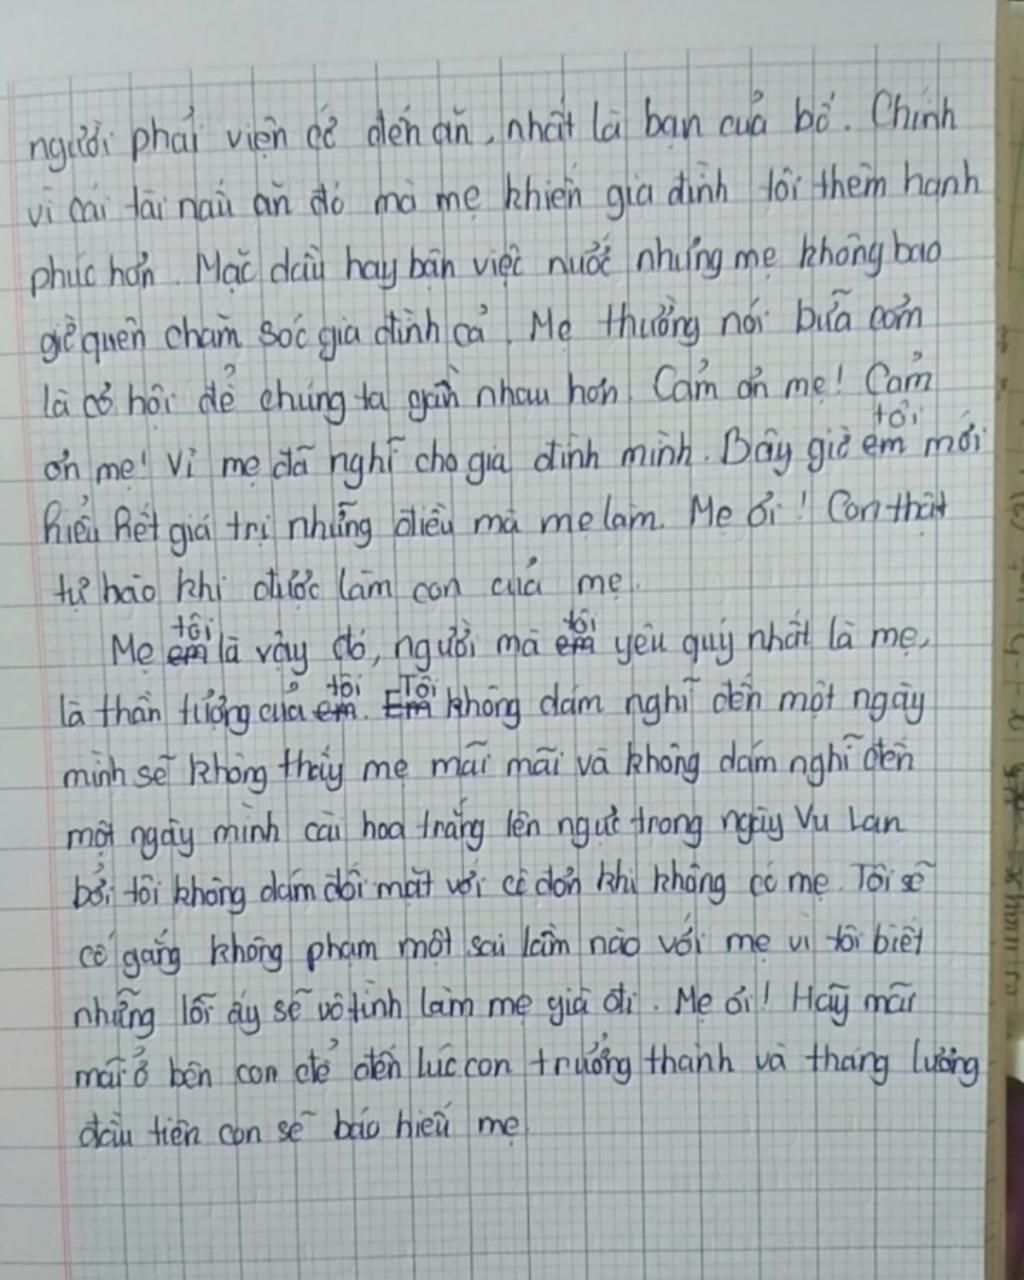 người phải viện cớ đến ăn, nhất là bạn của bố. Chính
vì cái tài nấu ăn đó mà mẹ khiến gia đình tôi thêm hạnh
phúc hơn. Mặc dầu hay bận việc nước nhưng mẹ không bao
giờ quên chăm sóc gia đình cả. Mẹ thường nói bữa cơm
là cơ hội để chúng ta gần nhau hơn. Cảm ơn mẹ! Cảm
tôi
ơn mẹ! Vì mẹ đã nghĩ cho gia đình mình. Bây giờ em mới
hiểu hết giá trị những điều mà mẹ làm. Mẹ ơi! Con thật
tự hào khi được làm con của mẹ.
tôi tôi
Mẹ em là vậy đó, người mà em yêu quý nhất là mẹ,
tôi Tôi
là thần tượng của em. Em không dám nghĩ đến một ngày
mình sẽ không thấy mẹ mãi mãi và không dám nghĩ đến
một ngày mình cài hoa trắng lên ngực trong ngày Vu Lan
bởi tôi không dám đối mặt với cô đơn khi không có mẹ. Tôi sẽ
cố gắng không phạm một sai lầm nào với mẹ vì tôi biết
những lỗi ấy sẽ vô tình làm mẹ già đi. Mẹ ơi! Hãy mãi
mãi ở bên con để đến lúc con trưởng thành và tháng lương
đầu tiên con sẽ báo hiếu mẹ.